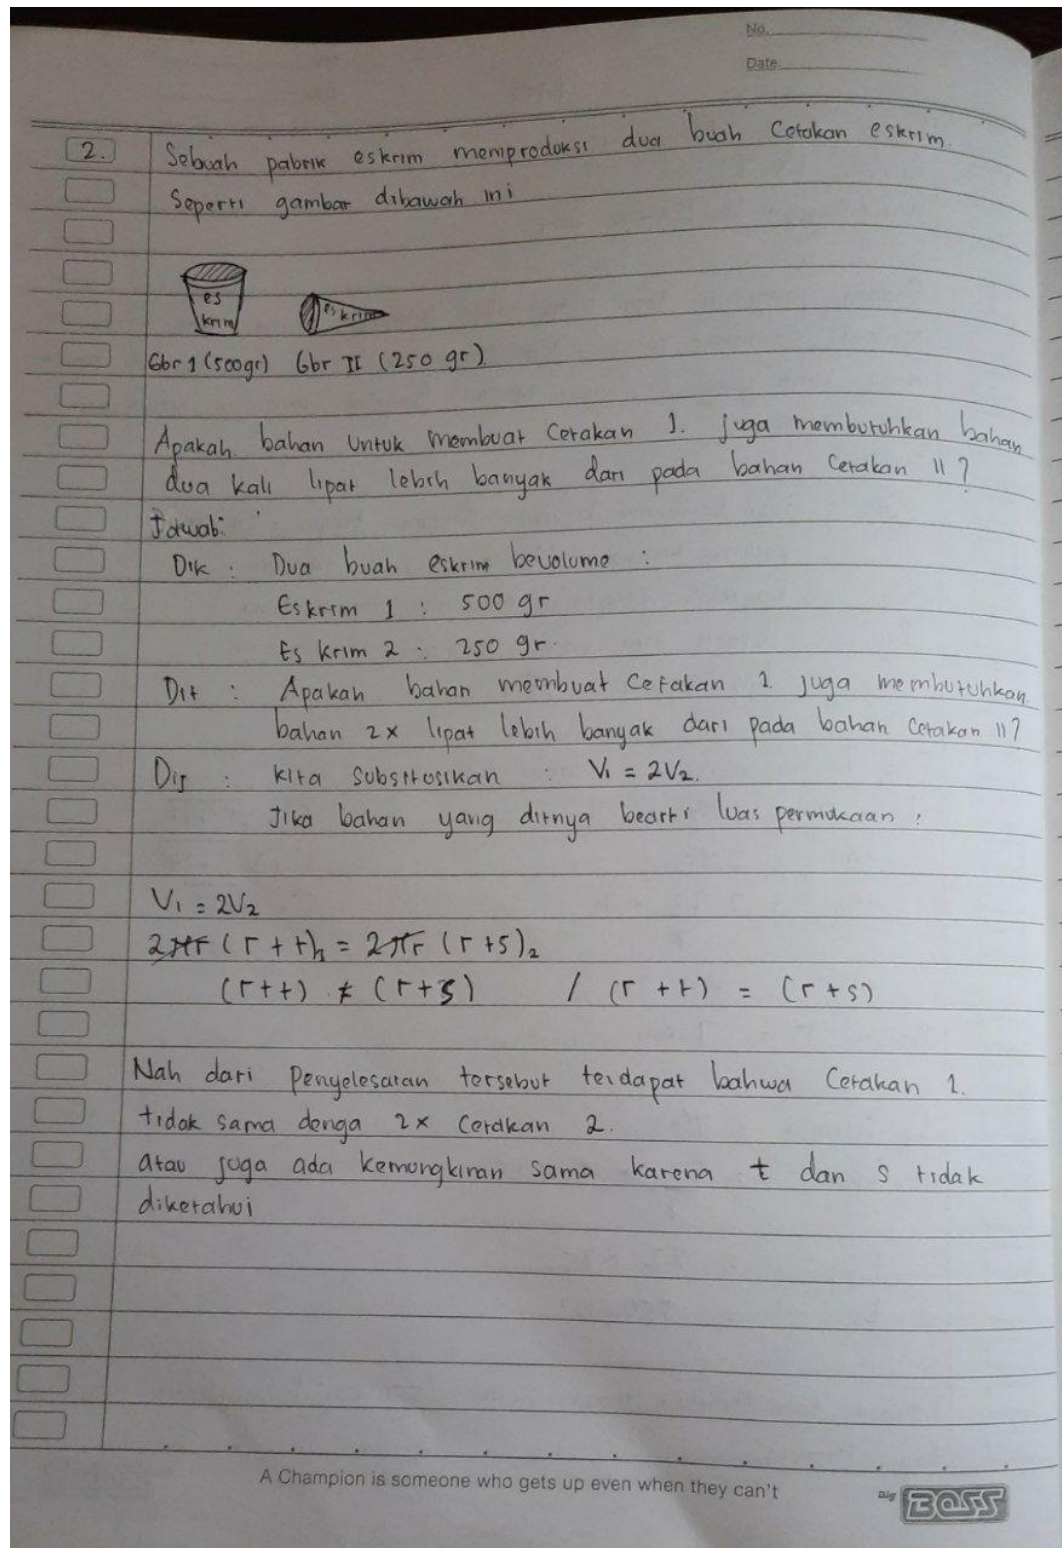 No.
Date.
2. Sebuah pabrik eskrim memproduksi dua buah Cetakan eskrim.
Seperti gambar dibawah ini
es
krim
es krim
Gbr 1 (500gr) Gbr II (250 gr)
Apakah bahan Untuk Membuat Cetakan 1. juga membutuhkan bahan
dua kali lipat lebih banyak dari pada bahan Cetakan II ?
Jawab:
Dik : Dua buah eskrim bevolume :
Eskrim 1 : 500 gr
Es krim 2 : 250 gr.
Dit : Apakah bahan membuat Cetakan 1. juga membutuhkan
bahan 2x lipat lebih banyak dari pada bahan Cetakan II ?
Dij : kita Substitusikan : V₁ = 2V₂.
Jika bahan yang ditnya bearti luas permukaan :
V₁ = 2V₂
2πr (r + t)₁ = 2πr (r +s)₂
(r+t) ≠ (r+s) / (r + t) = (r + s)
Nah dari Penyelesaian tersebut terdapat bahwa Cetakan 1.
tidak sama denga 2x Cetakan 2.
atau juga ada kemungkinan sama karena t dan s tidak
diketahui
A Champion is someone who gets up even when they can't
Big BOSS